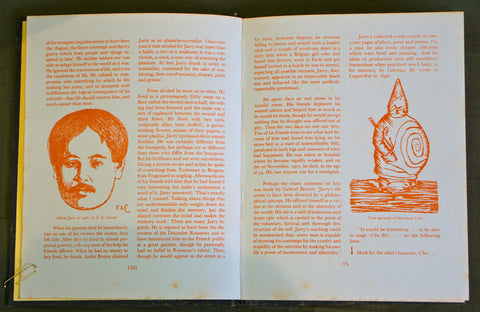 of his strongest impulses seem to have been
the 'disgust, the fierce contempt and the ity
grates which both people and things in-
spired in him'. He neither wished nor was
able to adapt himself to the world as it was.
He ignored the conventions of life, and even
the conditions of life. He refused to com-
promise with something for which he felt
nothing but scorn, and he accepted with
indifference the logical consequence of his
attitude: that life should destroy him, and
much sooner than later.
F-A.C
Alfred Jarry in 1906, by F.-A. Cazals
When his parents died he immediately
lost on one of his visitors the money they
left him. After that he lived in almost per-
petual poverty, refusing most of the help his
friends offered. When he had no money to
buy food, he drank. André Breton claimed
VIII
Jarry as an alcoholic-surrealist. Chauveau
puts it that alcohol for Jarry was more than
a habit, a vice or a weakness, it was a con-
viction, a need, a sure way of attaining the
absolute. At first Jarry drank in order to
scandalize, continued for the sake of con-
tinuing, then out of necessity, despair, pride
and genius.
From alcohol he went on to ether. He
lived in a picturesquely filthy room on a
floor called the second-and-a-half; the ceil-
ing had been lowered and the room was a
sort of cupboard between the second and
third floors. He lived with two owls,
(originally alive, later stuffed), a palette,
stinking flowers, masses of dirty papers, a
stone phallus. Jarry's personal filth or morals
familiar. He was certainly different from
the bourgeois, but perhaps not so different
as bohemians differ from the bourgeois.
But his brilliance and wit were uncommon.
Giving a lecture on art and artists he spoke
of everything from Turkestan to Bergson,
from Fragonard to angling. Afterwards one
of his friends told him that he had found it
very interesting but hadn't understood a
word of it. Jarry answered: 'That's exactly
what I wanted. Talking about things that
are understandable only weighs down the
mind and falsifies the memory, but the
absurd exercises the mind and makes the
memory work.' There are many Jarry le-
gends. He is reputed to have been the dis-
coverer of the Douanier Rousseau and to
have introduced him to the French public
as a great painter, though he personally
had no belief in Rousseau's talent. Then,
though he would appear in the street in a
fur toque, bedroom slippers, an overcoat
falling to pieces, and armed with a loaded
stick and a couple of revolvers, there is a
story that when a Belgian lady who had
heard him lecture, went to Paris and got
herself invited to a lunch he was to attend,
expecting all possible excesses, Jarry, fore-
warned, appeared in an impeccable black
suit and behaved like the most perfectly
respectable gentleman.
He spent days on end alone in his
squalid room. His friends deplored his
wasted talents and helped him as much as
he would let them, though he would accept
nothing that he thought was offered out of
pity. Then for two days no one saw him.
Two of his friends went to see what had be-
come of him and found him lying on his
straw bed in a state of indescribable filth,
paralysed in both legs and unaware of what
had happened. He was taken to hospital
where he became rapidly weaker, and on
the 1st November, 1907, he died, at the age
of 34. His last request was for a toothpick.
Perhaps the wisest comment on him
was made by Gabriel Brunet: 'Jarry's life
seems to have been directed by a philoso-
phical concept. He offered himself as a vic-
tim to the derision and to the absurdity of
the world. His life is a sort of humorous and
ironic epic which is carried to the point of
the voluntary, farcical and thorough des-
truction of the self. Jarry's teaching could
be summarized thus: every man is capable
of showing his contempt for the cruelty and
stupidity of the universe by making his own
life a poem of incoherence and absurdity.'
Jarry's collected works consist of nume-
rous pages of plays, prose and poems. For
a time he also wrote theatre criticism
which were brief and amusing. And his
ideas on production were still considered
innovations when practised much later, as
for instance, by Copeau. He wrote to
Lugné-Poe in 1896:
True portrait of Monsieur Ubu
'It would be interesting . . . to be able
to stage (Ubu Roi) . . . on the following
lines:
1 Mask for the chief character, Ubu . . .
IX